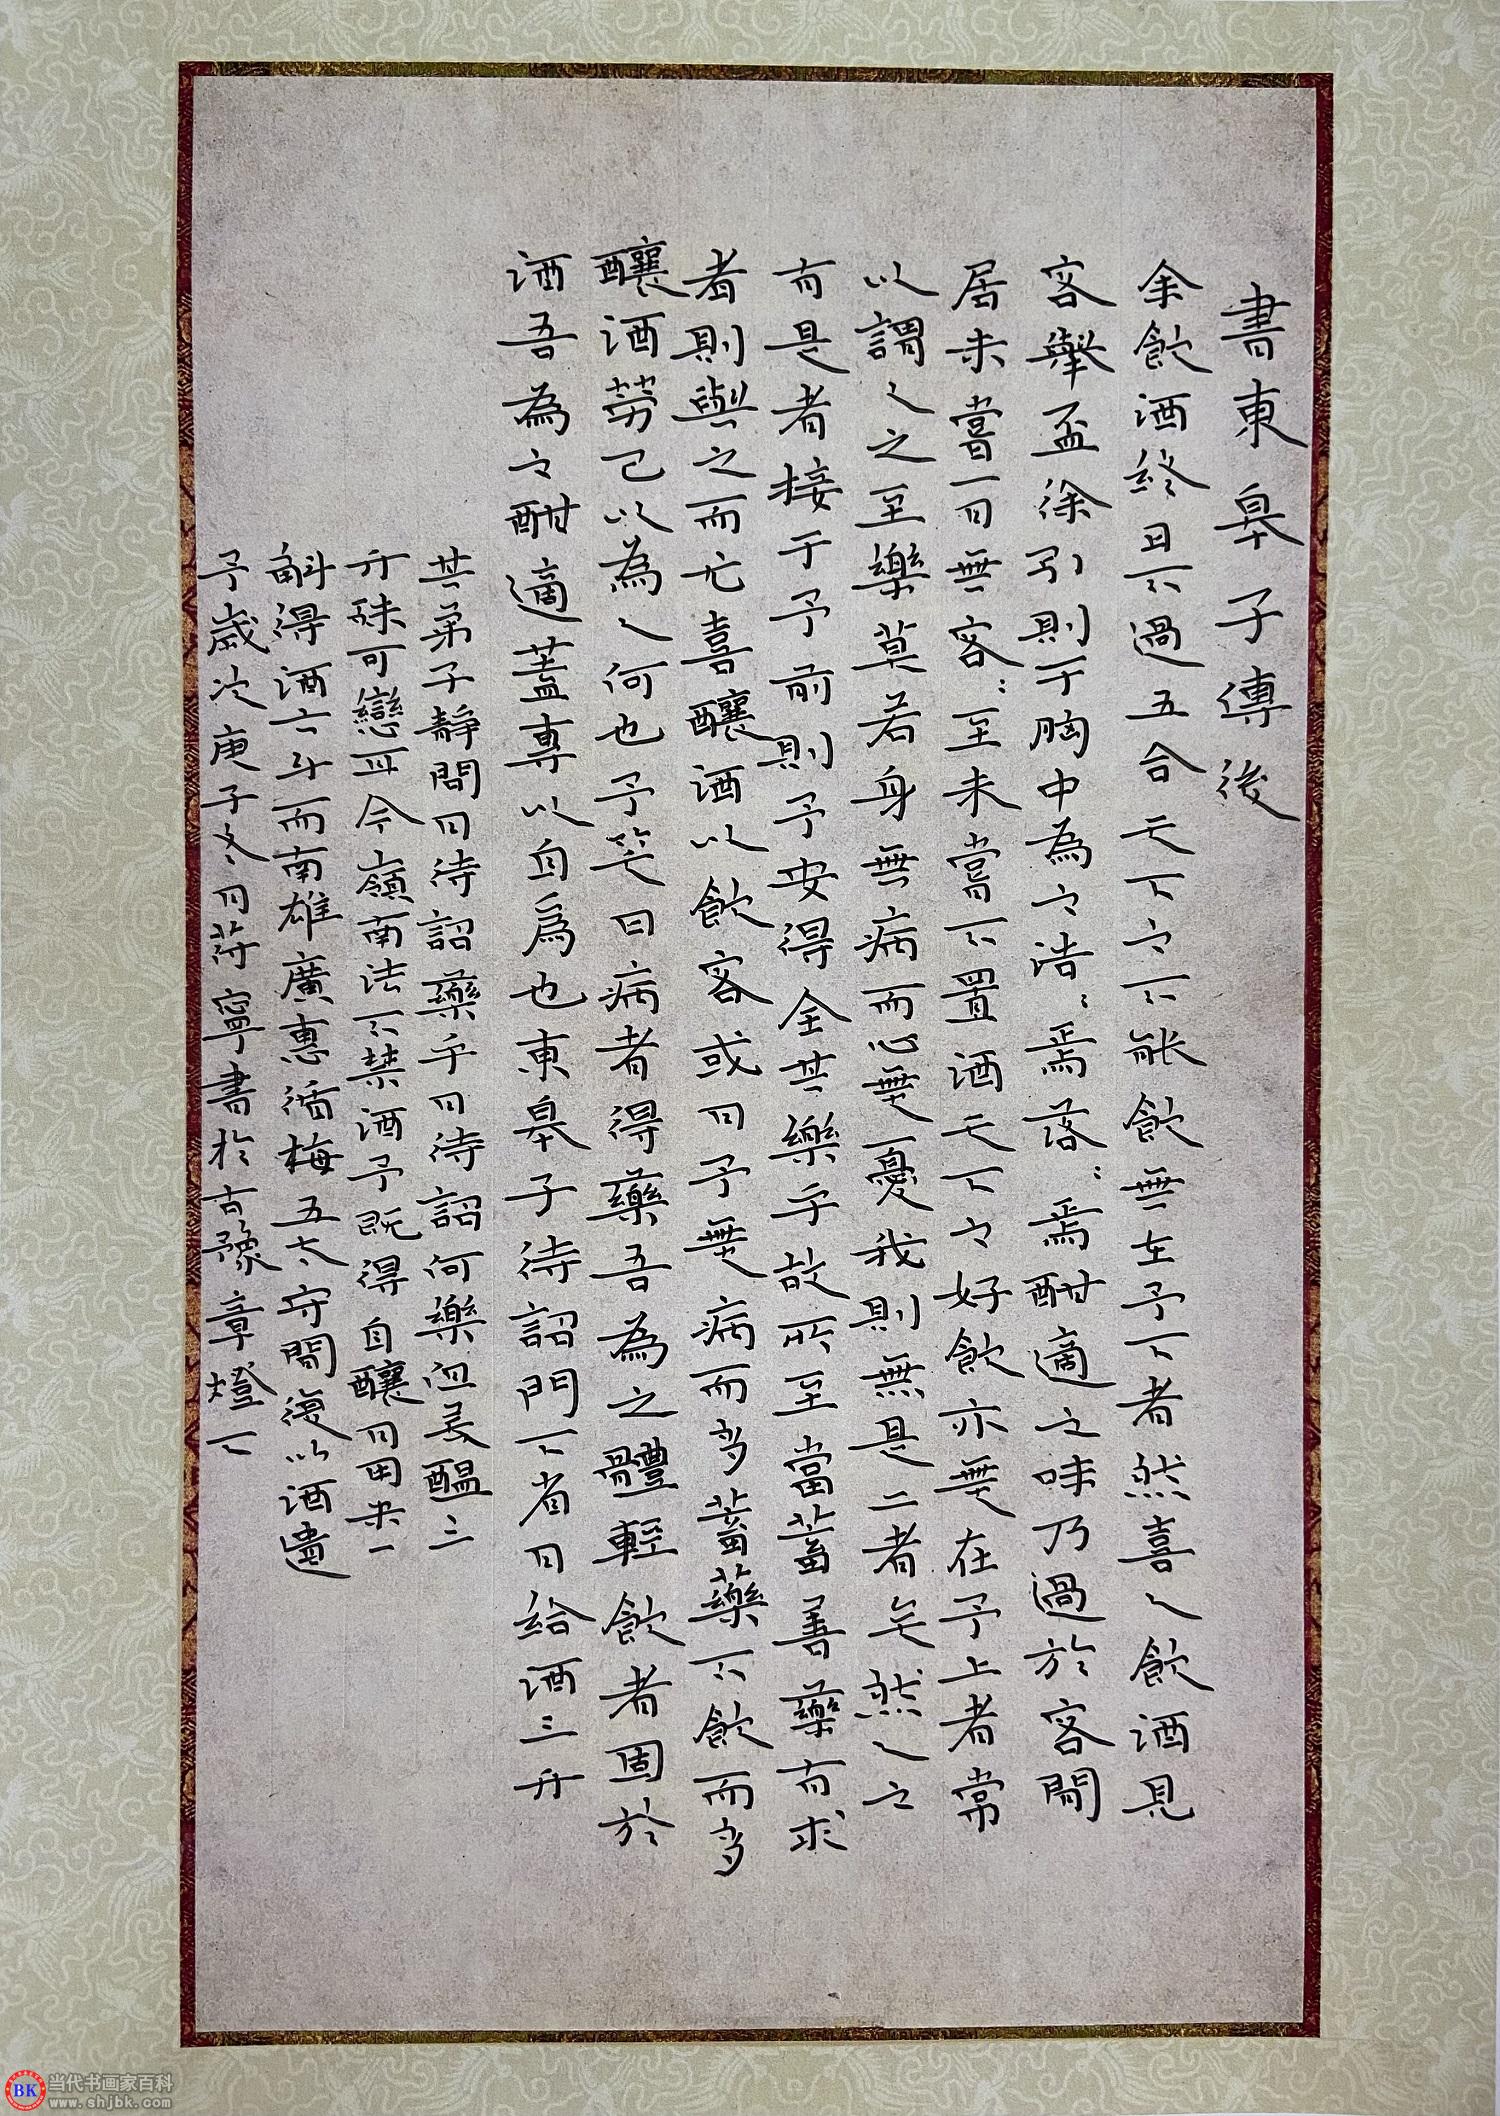 書東皋子傳後
余飲酒終日不過五合天下之不能飲無在予下者然喜人飲酒見
客舉盃徐引則予胸中為之浩:焉落:焉酣適之味乃過於客閒
居未嘗一日無客:至未嘗不置酒天下之好飲亦無在予上者常
以謂人之至樂莫若身無病而心無憂我則無是二者矣然人之
有是者接于予前則予安得全其樂乎故所至當蓄善藥有求
者則與之而尤喜釀酒以飲客或曰予無病而多蓄藥不飲而多
釀酒勞己以為人何也予笑曰病者得藥吾為之體輕飲者困於
酒吾為之酣適蓋專以自為也東皋子待詔門下省日給酒三升
其弟子靜問曰待詔藥乎曰待詔何樂但美醞三
升殊可戀耳今嶺南法不禁酒予既得自釀月用米一
斛得酒六斗而南雄廣惠循梅五太守間復以酒遺
予歲次庚子冬月符寧書於古豫章燈下
當代书画家百科
www.shjbk.com
BK